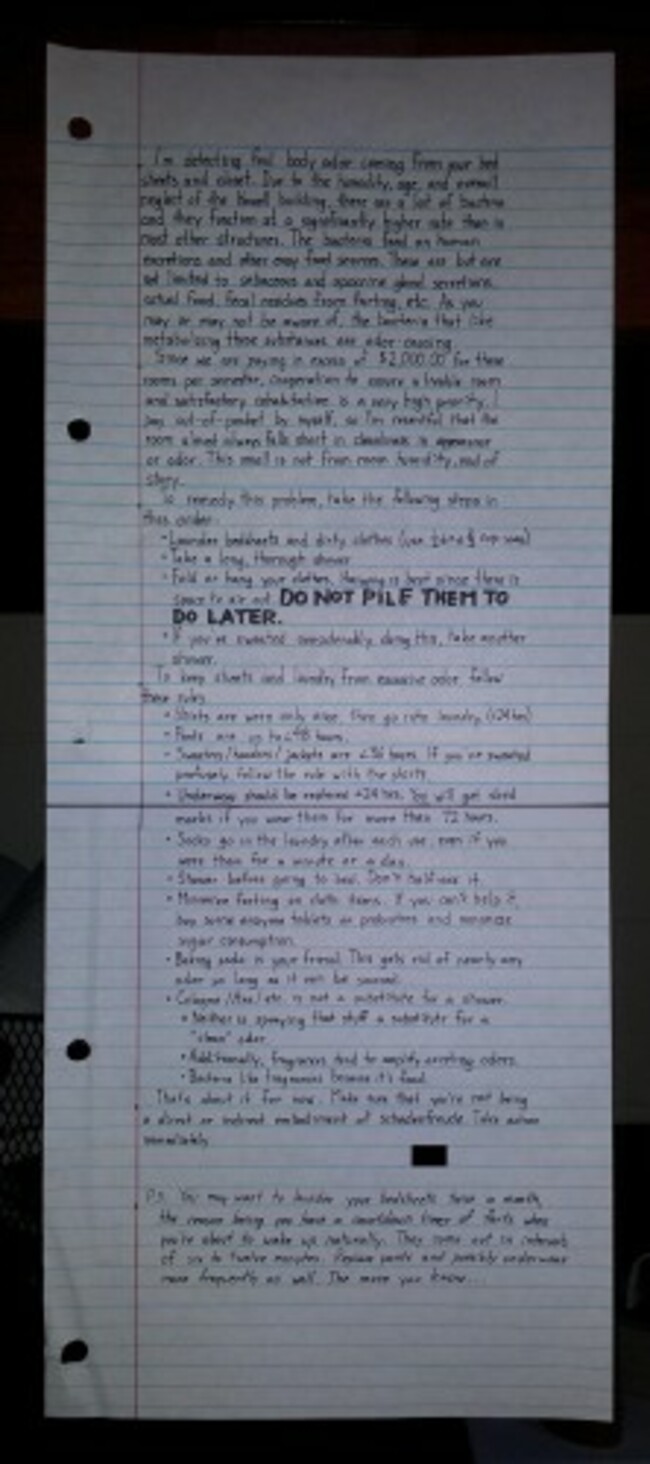 I'm detecting foul body odor coming from your bed
sheets and closet. Due to the humidity, age, and overall
neglect of the building, there are a lot of bacteria
and they function at a significantly higher rate than in
most other structures. The bacteria feed on human
excretions and other may food sources. These are but are
not limited to sebaceous and apocrine gland secretions,
actual food, fecal residues from farting, etc. As you
may or may not be aware of, the bacteria that like
metabolizing these substances are odor causing.
Since we are paying in excess of $2,000.00 for these
rooms per semester, cooperation to assure a livable room
and satisfactory cohabitation is a very high priority. I
pay out-of-pocket by myself, so I'm resentful that the
room almost always falls short in cleanliness in appearance
or odor. This smell is not from mere humidity, end of
story.
To remedy this problem, take the following steps in
this order:
• Launder bedsheets and dirty clothes (use cup soap)
• Take a long, thorough shower
• Fold or hang your clothes. Hanging is best since there is
space to air out. DO NOT PILE THEM TO
DO LATER.
• If you've sweated considerably doing this, take another
shower.
To keep sheets and laundry from excessive odor, follow
these rules
• Shirts are worn only once, then go into laundry (<24 hrs)
• Pants are up to <48 hours.
• Sweaters/hoodies/jackets are <36 hours. If you've sweated
profusely, follow the rule with the shirts.
• Underwear should be replaced <24 hrs. You will get skid
marks if you wear them for more than 72 hours.
• Socks go in the laundry after each use, even if you
wore them for a minute or a day.
• Shower before going to bed. Don't half-ass it.
• Minimize farting on cloth items. If you can't help it,
buy some enzyme tablets or probiotics and minimize
sugar consumption.
• Baking soda is your friend. This gets rid of nearly any
odor so long as it can be
• Cologne/Axe/etc. is not a substitute for a shower.
• Neither is spraying that stuff a substitute for a
"clean" odor.
• Additionally, fragrances tend to amplify existing odors.
• Bacteria like fragrances because it's food.
That's about it for now. Make sure that you're not being
a direct or indirect embodiment of schadenfreude. Take action
immediately.
P.S. You may want to launder your bedsheets twice a month,
the reason being you have a countdown timer of farts when
you're about to wake up naturally. They come out in intervals
of six to twelve minutes. Replace pants and possibly underwear
more frequently as well. The more you know...